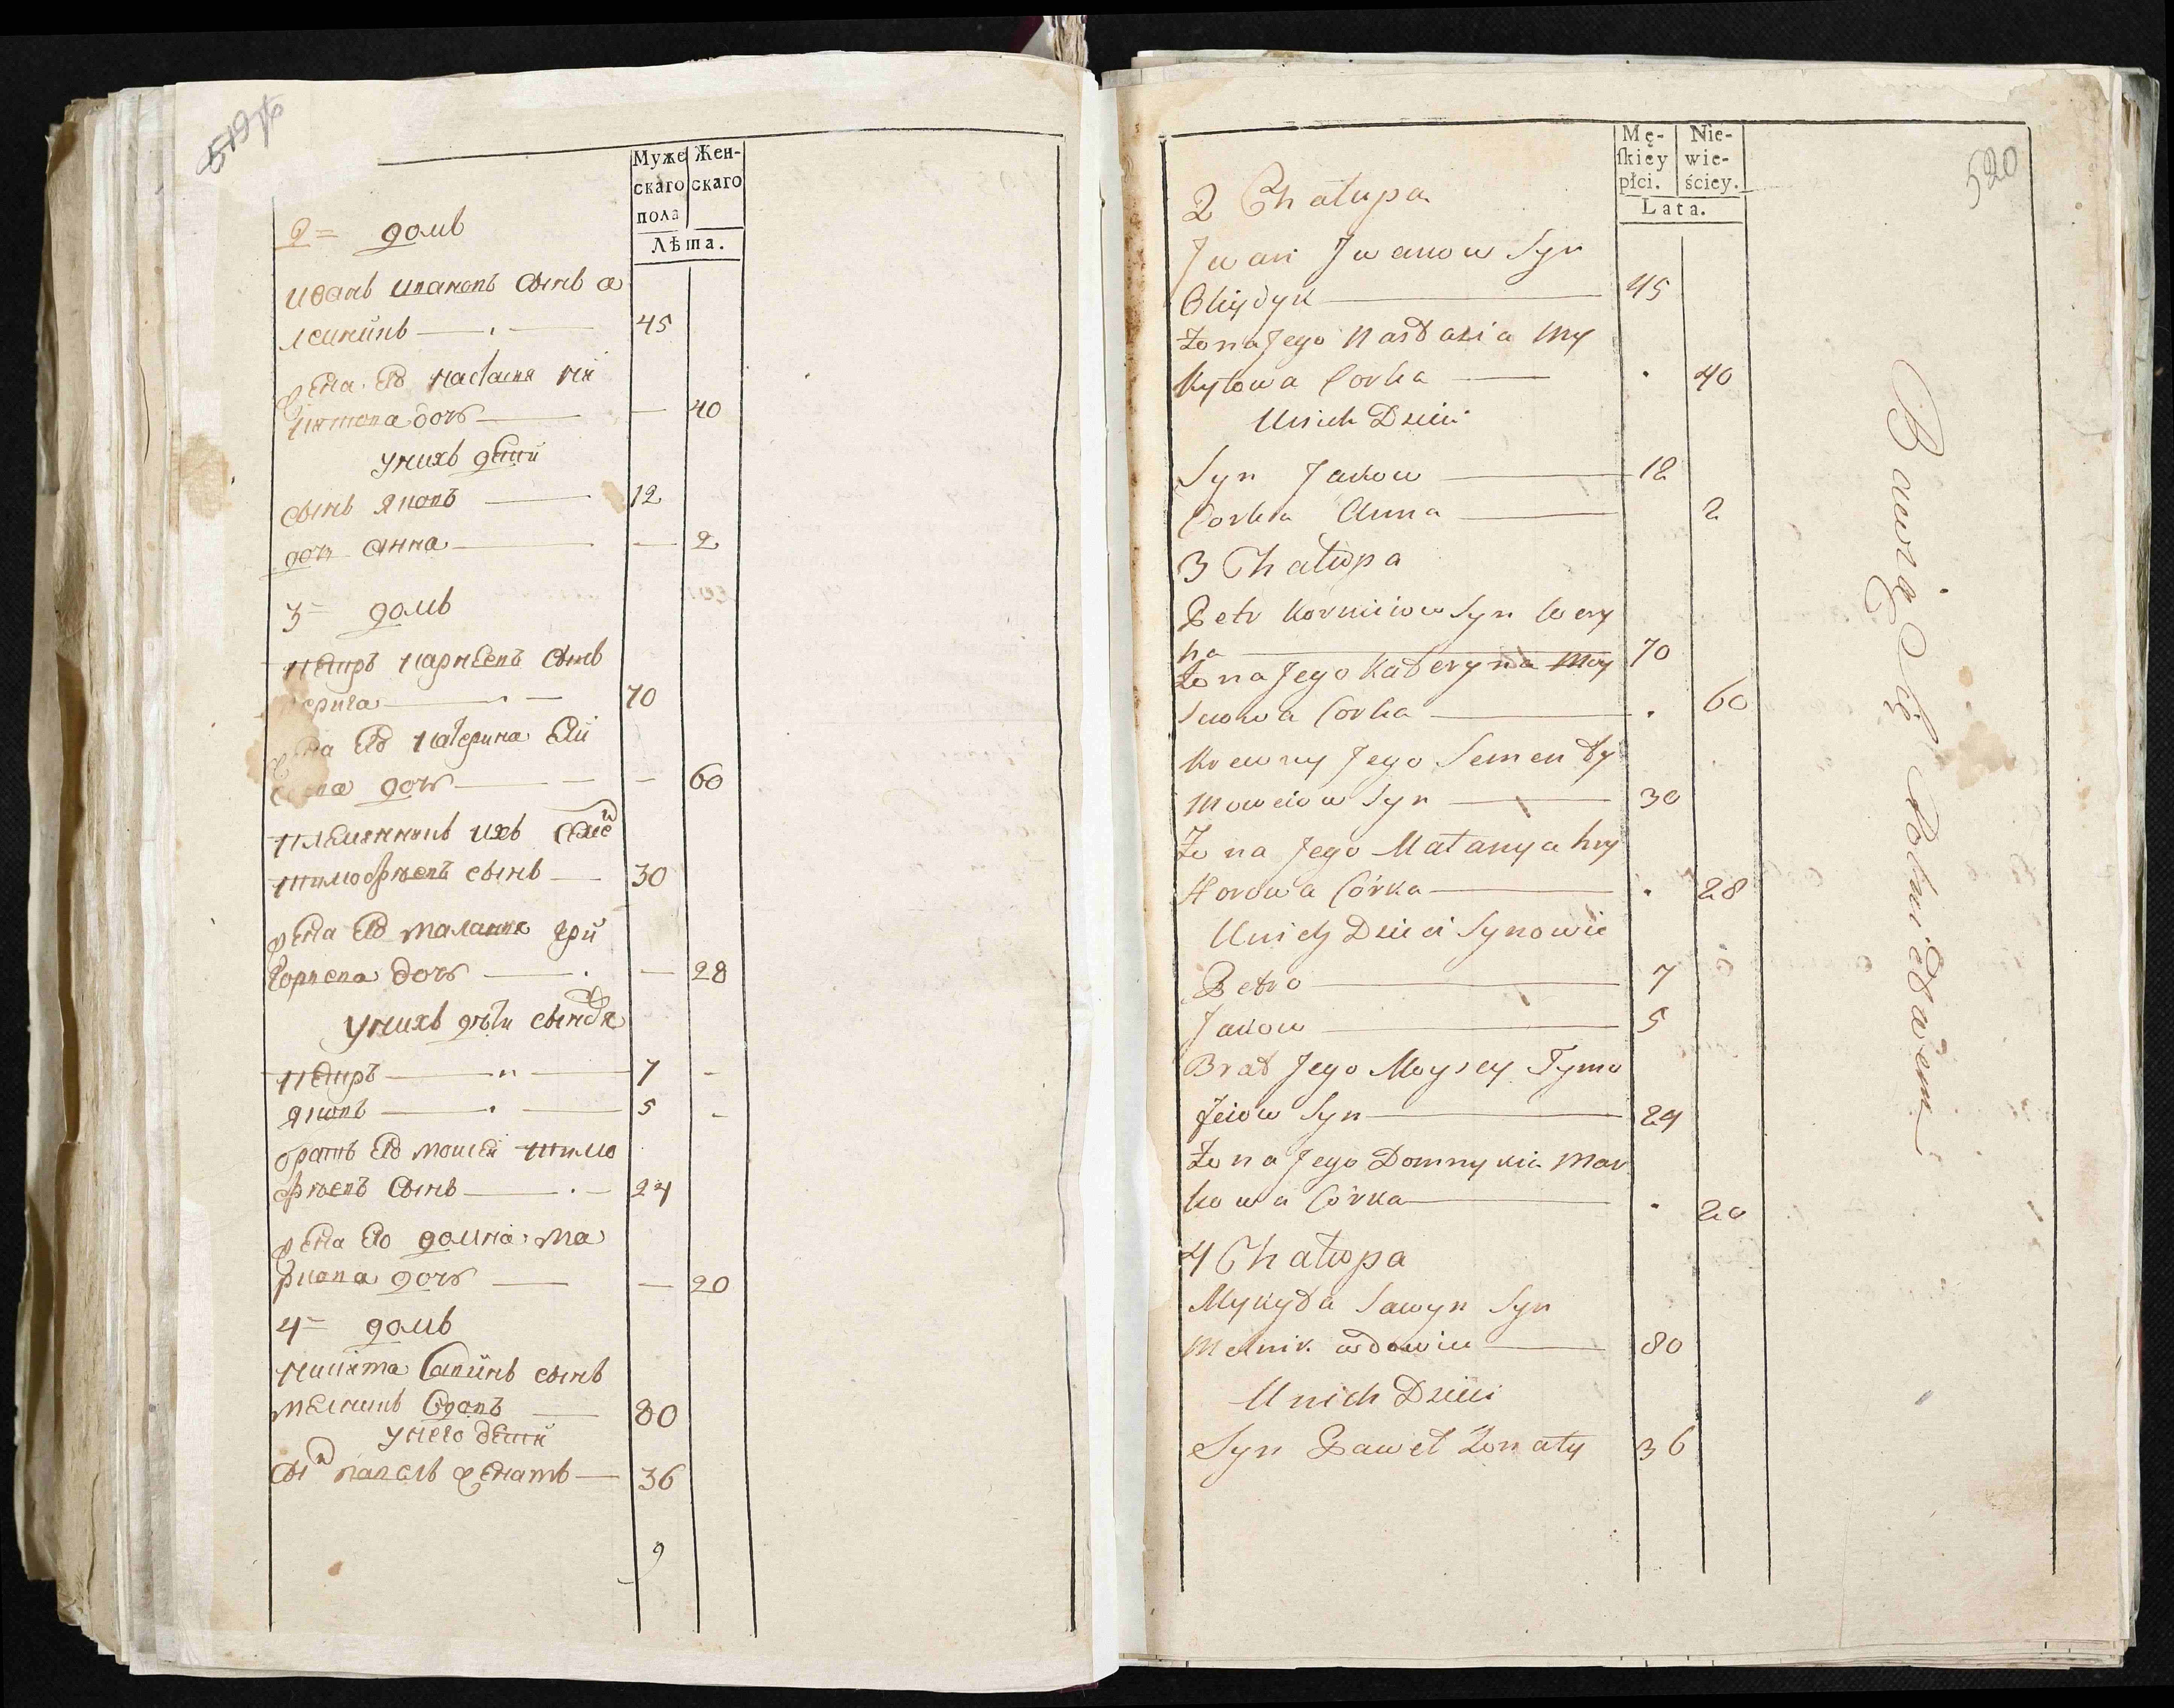 519
Муже
скаго
пола
Жен-
скаго
Лѣта.
2= домъ
Иванъ Ивановъ сынъ О
лейникъ 45
жена его Настасия Ни
китова дочь — 40
у нихъ дети
сынъ Яковъ 12
дочь Анна — 2
3= домъ
Петръ Карнеевъ сынъ
70
жена его Катерина
дочь — 60
племянникъ ихъ Семе
тимофѣевъ сынъ 30
жена его Малания Гри
горьева дочь — 28
у нихъ дѣти сыновья
Петръ 7 —
Яковъ 5 —
братъ его Моисей Тимо
фѣевъ сынъ 24
жена его Домна Ма
дочь — 20
4= домъ
Никита Савинъ сынъ
Мелникъ вдовъ 80
у него дети
сынъ Павелъ женатъ 36
9
520
Mę-
ſkiey
płci.
Nie-
wie-
ściey.
Lata.
2 Chałupa
Jwan Jwanow Syn
45
Żona Jego Nastazia My
kytowa Corka . 40
Unich Dzieci
Syn Jakow 12
Corka Anna 2
3 Chałupa
Petr Korniiow Syn Wery
ha 70
Żona Jego Kateryna
Corka . 60
Krewny Jego Semen Ty
moweiow Syn 30
Żona Jego Małanya hry
horowa Córka . 28
Unich Dzieci Synowie
Petro 7
Jakow 5
Brat Jego Moysey Tymo
feiow Syn 24
Żona Jego Domnykia Mar
kowa Córka . 20
4 Chałupa
Mykyta Sawyn Syn
Melnik wdowiec 80
Unich Dzieci
Syn Paweł Żonaty 36